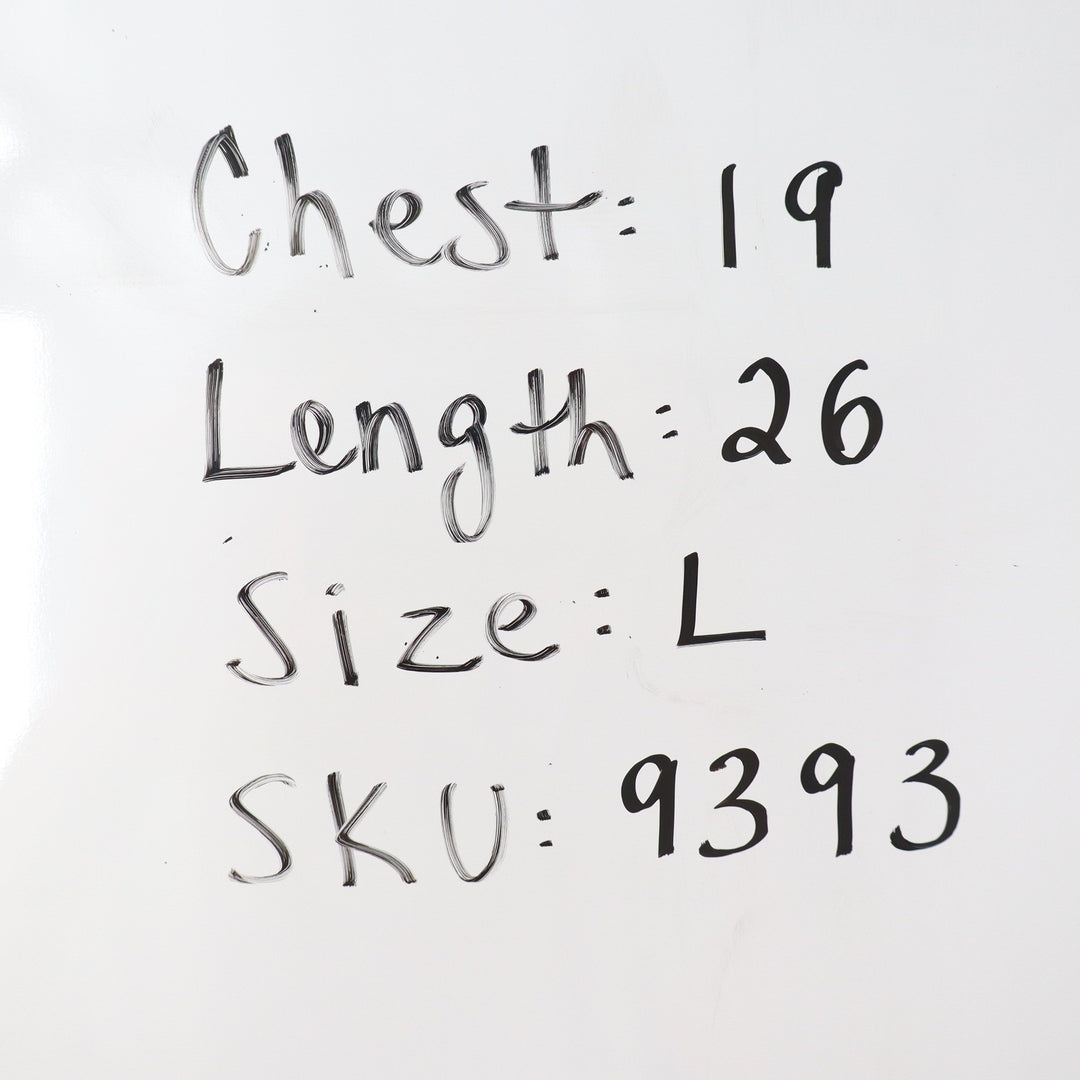 Chest: 19
Length: 26
Size: L
SKU: 9393